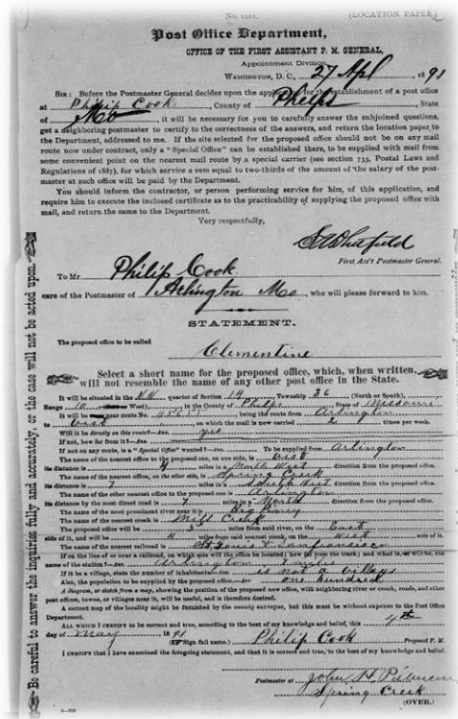 (LOCATION PAPER)
Post Office Department,
OFFICE OF THE FIRST ASSISTANT P. M. GENERAL,
Appointment Division,
WASHINGTON, D. C., 27 Apl, 1891
SIR: Before the Postmaster General decides upon the application for the establishment of a post office
at Philip Cook, County of Phelps, State
of Mo, it will be necessary for you to carefully answer the subjoined questions,
get a neighboring postmaster to certify to the correctness of the answers, and return the location paper to
the Department, addressed to me. If the site selected for the proposed office should not be on any mail
route now under contract, only a "Special Office" can be established there, to be supplied with mail from
some convenient point on the nearest mail route by a special carrier (see section 733, Postal Laws and
Regulations of 1887), for which service a sum equal to two-thirds of the amount of the salary of the post-
master at such office will be paid by the Department.
You should inform the contractor, or person performing service for him, of this application, and
require him to execute the inclosed certificate as to the practicability of supplying the proposed office with
mail, and return the same to the Department.
Very respectfully,
First Ass't Postmaster General.
To Mr. Philip Cook
care of the Postmaster of Arlington Mo, who will please forward to him.
STATEMENT.
The proposed office to be called
Clementine
Select a short name for the proposed office, which, when written,
will not resemble the name of any other post office in the State.
It will be situated in quarter of Section 14, Township 36 (North or South),
Range 10 West), in the County of Phelps, State of Missouri
It will be near route No. being the route from Arlington
to on which the mail is now carried 2 times per week.
Will it be directly on this route?—Ans. yes
If not, how far from it?—Ans.
If not on any route, is a "Special Office" wanted?—Ans. To be supplied from Arlington
The name of the nearest office to the proposed one, on one side, is
its distance is 4 miles in a North West direction from the proposed office.
The name of the nearest office, on the other side, is Spring Creek
its distance is 7 miles in a South West direction from the proposed office.
The name of the other nearest office to the proposed one is Arlington
its distance by the most direct road is 7 miles in a North direction from the proposed office.
The name of the most prominent river near it is Big Piney
The name of the nearest creek is Mill Creek
The proposed office will be miles from said river, on the East
side of it, and will be miles from said nearest creek, on the West side of it.
The name of the nearest railroad is
name of the station?—Ans. Arlington 7 miles
If it be a village, state the number of inhabitants?—Ans. is not a village
Also, the population to be supplied by the proposed office—Ans. one hundred
A diagram, or sketch from a map, showing the position of the proposed new office, with neighboring river or creek, roads, and other
post offices, towns, or villages near it, will be useful, and is therefore desired.
A correct map of the locality might be furnished by the county surveyor, but this must be without expense to the Post Office
Department.
ALL WHICH I CERTIFY to be correct and true, according to the best of my knowledge and belief, this 4th
day of May, 1891
(Sign full name.) Philip Cook, Proposed P. M.
I CERTIFY that I have examined the foregoing statement, and that it is correct and true, to the best of my knowledge and belief.
Postmaster at John H.
Spring Creek
(OVER.)
Be careful to answer the inquiries fully and accurately, or the case will not be acted upon.